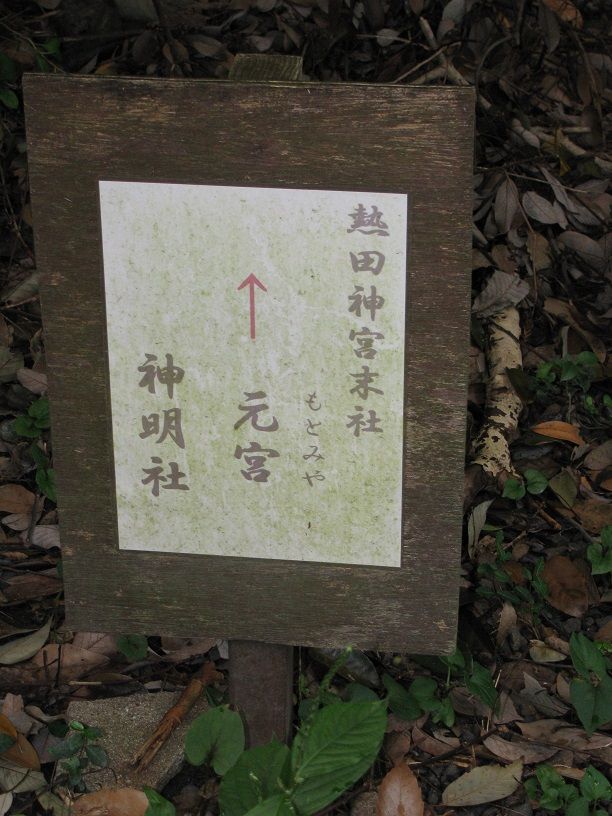 熱田神宮末社
もとみや
↑ 元宮
神明社